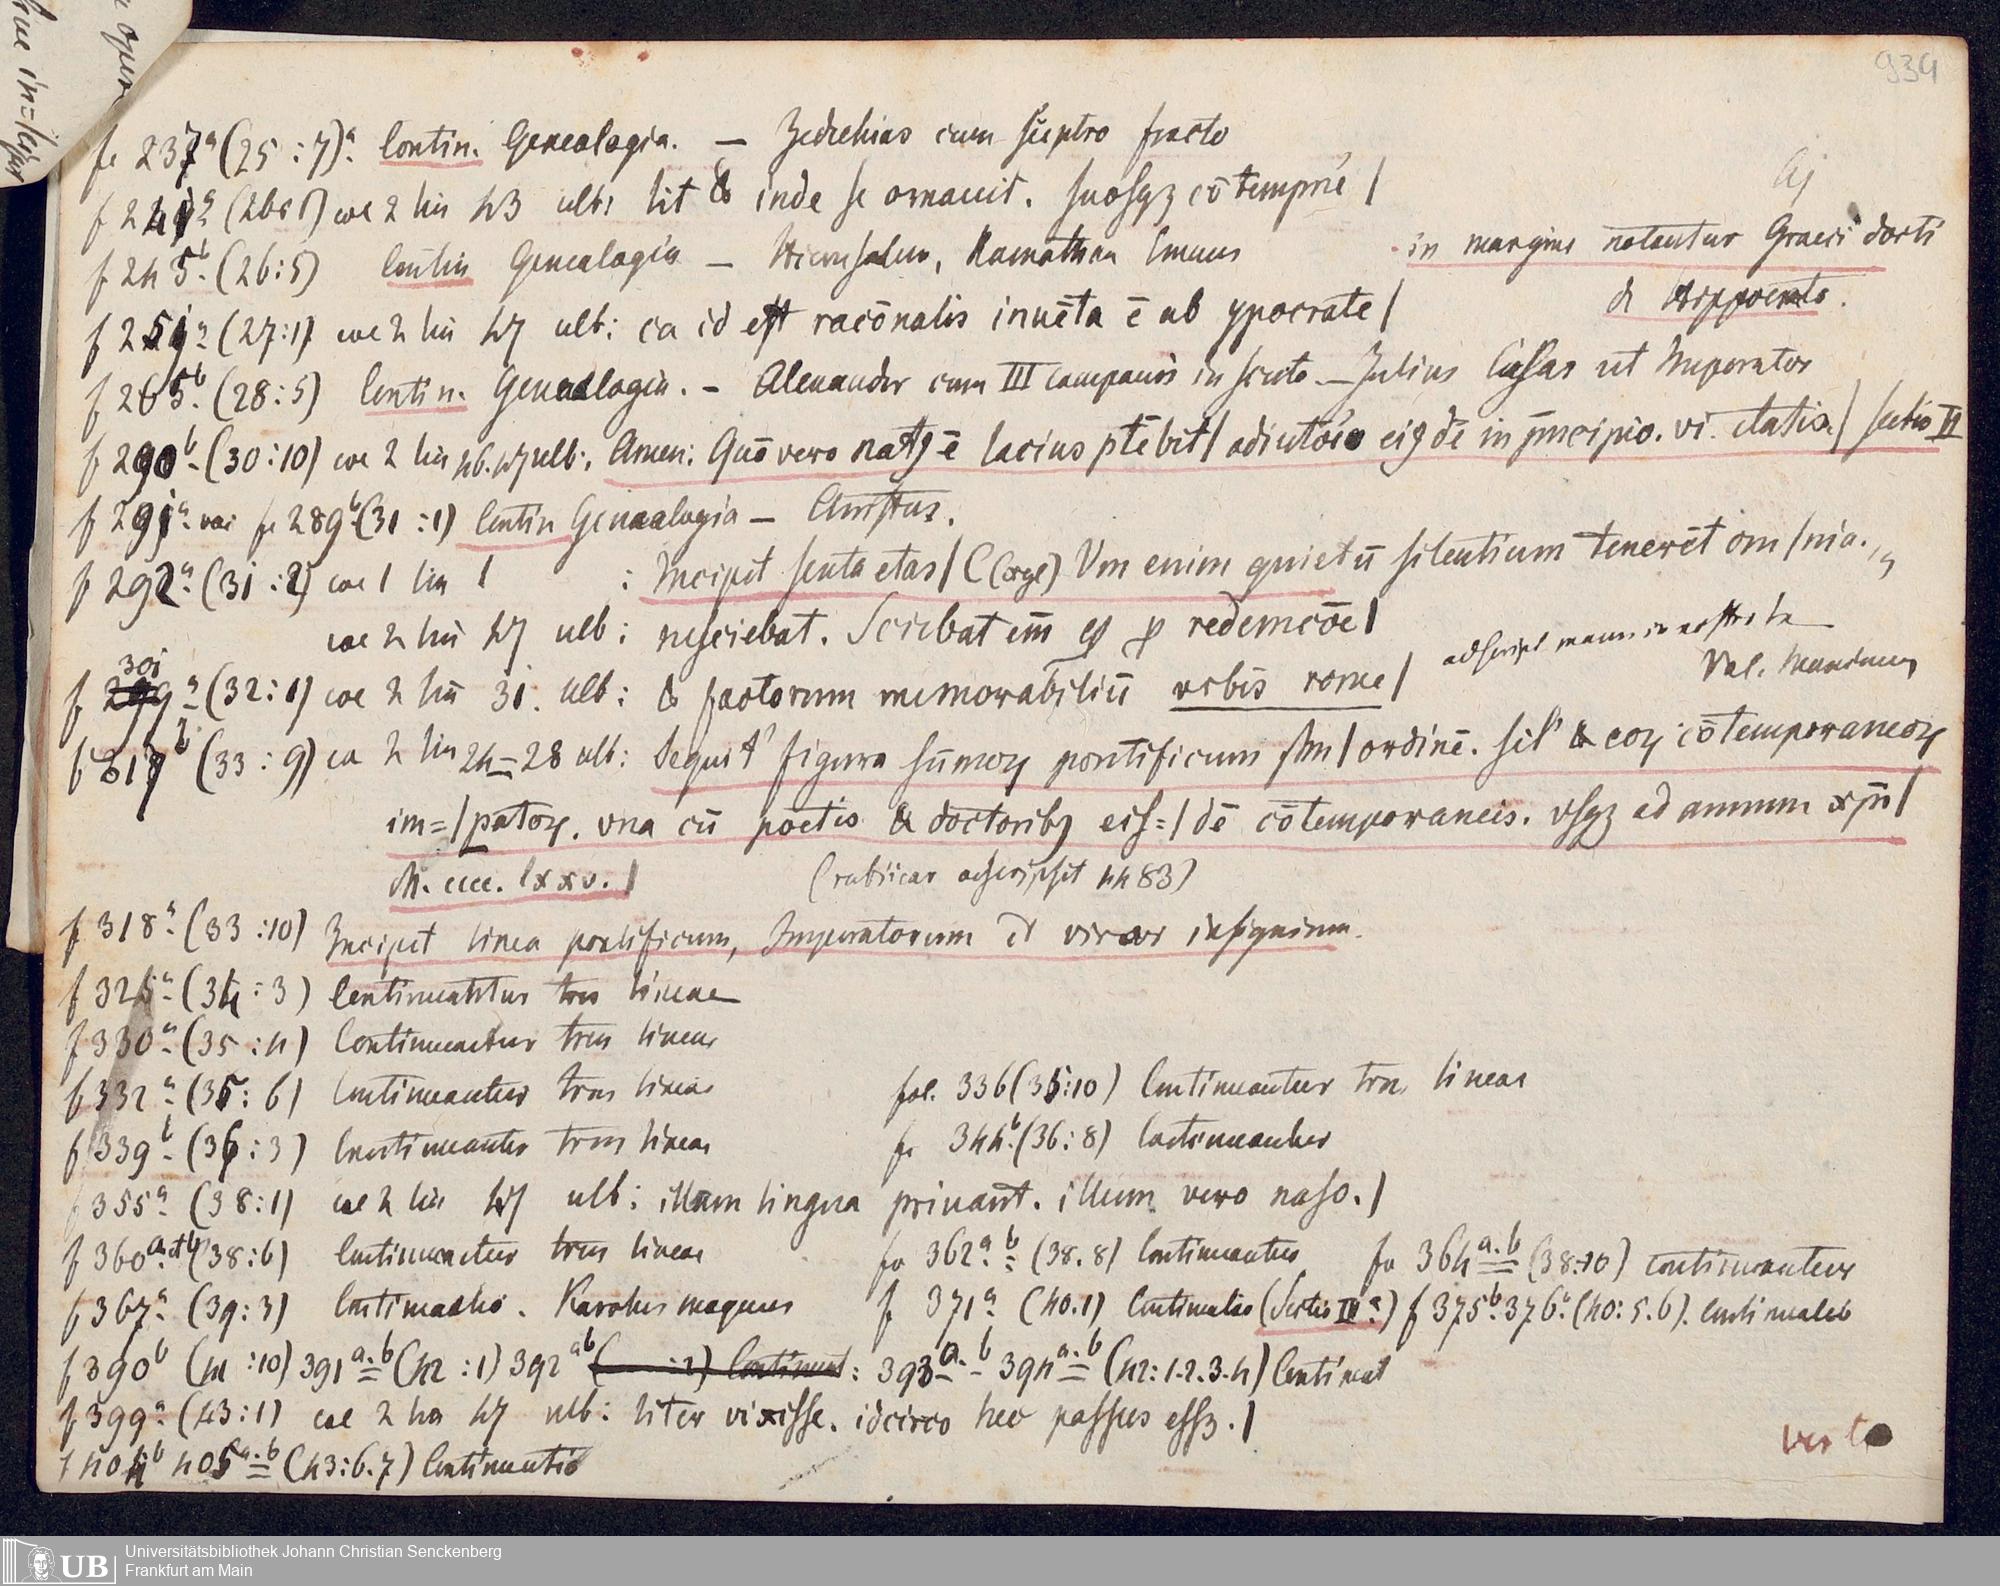 939
f. 237a (25:7)a. Contin. Genealogia. — Zedechias cum sceptro fracto
f 241a (26:1) col 2 lin 43 ulb: lit & inde se ornauit. suosqz cō tempnē |
aj
f 245b. (26:5) Contin Genealogia — Hierusalem, Ramatha Emaus
in margine notantur Graeci docti
& Hippocrates.
f 251a (27:1) col 2 lin 47 ulb: ca id est racōnalis inuēta ē ab ypocrate |
f 265b. (28:5) Contin. Genealogia. — Alexander cum III campanis in scuto — Julius Cesar ut Imperator
f 290b. (30:10) col 2 lin 46.47 ulb: Amen. Quō vero natq ē lacius ptēbit | adiutōio eiq dē in pncipio. vi. etatis. | sectio II
f 291a. voc f. 289b (31:1) Contin Genealogia — Christus.
f 292a. (31:2) col 1 lin 1 : Incipit sexta etas | C (orge) Vm enim quietū silentium tenerēt om | nia.
col 2 lin 47 ulb: nesciebat. Sciebat em̄ q p redemcōe |
301
f 299a (32:1) col 2 lin 31. ulb: & factorum memorabiliū urbis rome |
adscript manu in nostro la
Val. Maximus
f 317b (33:9) co 2 lin 24=28 ulb: Sequit' figura sūmoꝝ pontificum sm | ordinē. sil' & eoꝝ cōtemporaneoꝝ
im= | patoꝝ. vna cū poetis & doctoribꝫ eis= | dē cōtemporaneis. vsqz ad annum xpn |
M. cccc. lxxv. |
(rubricar adscripsit 4483)
f 318a. (33:10) Incipit linea pontificum, Imperatorum et viror insignium.
f 325a. (34:3) Continuantur tres lineae
f 330a. (35:4) Continuantur tres lineae
f 332a. (35:6) Continuantur tres lineae
fol. 336 (35:10) Continuantur tres lineae
f 339b. (36:3) Continuantur tres lineae
f. 344b. (36:8) Continuantur
f 355a. (38:1) col 2 lin 47 ulb: illum lingua priuant. illum vero naso. |
f 360a. et b (38:6) Continuantur tres lineae
fo 362a. b (38.8) Continuantur
fo 364a. b (38:10) continuantur
f 367a. (39:3) Continuatio. Karolus magnus
f 371a. (40.1) Continuatio (Sectio IIa.) f 375b. 376a. (40:5.6). Continuatio
f 390b (41:10) 391a. b (42:1) 392ab (:2) Continuat: 393a. b 394a. b (42:1.2.3.4) Continuat
f 399a. (43:1) col 2 lin 47 ulb: liter vixisse. idcirco hec passus essz. |
f 404b 405a. b (43:6.7) Continuatio
verte
UB
Universitätsbibliothek Johann Christian Senckenberg
Frankfurt am Main